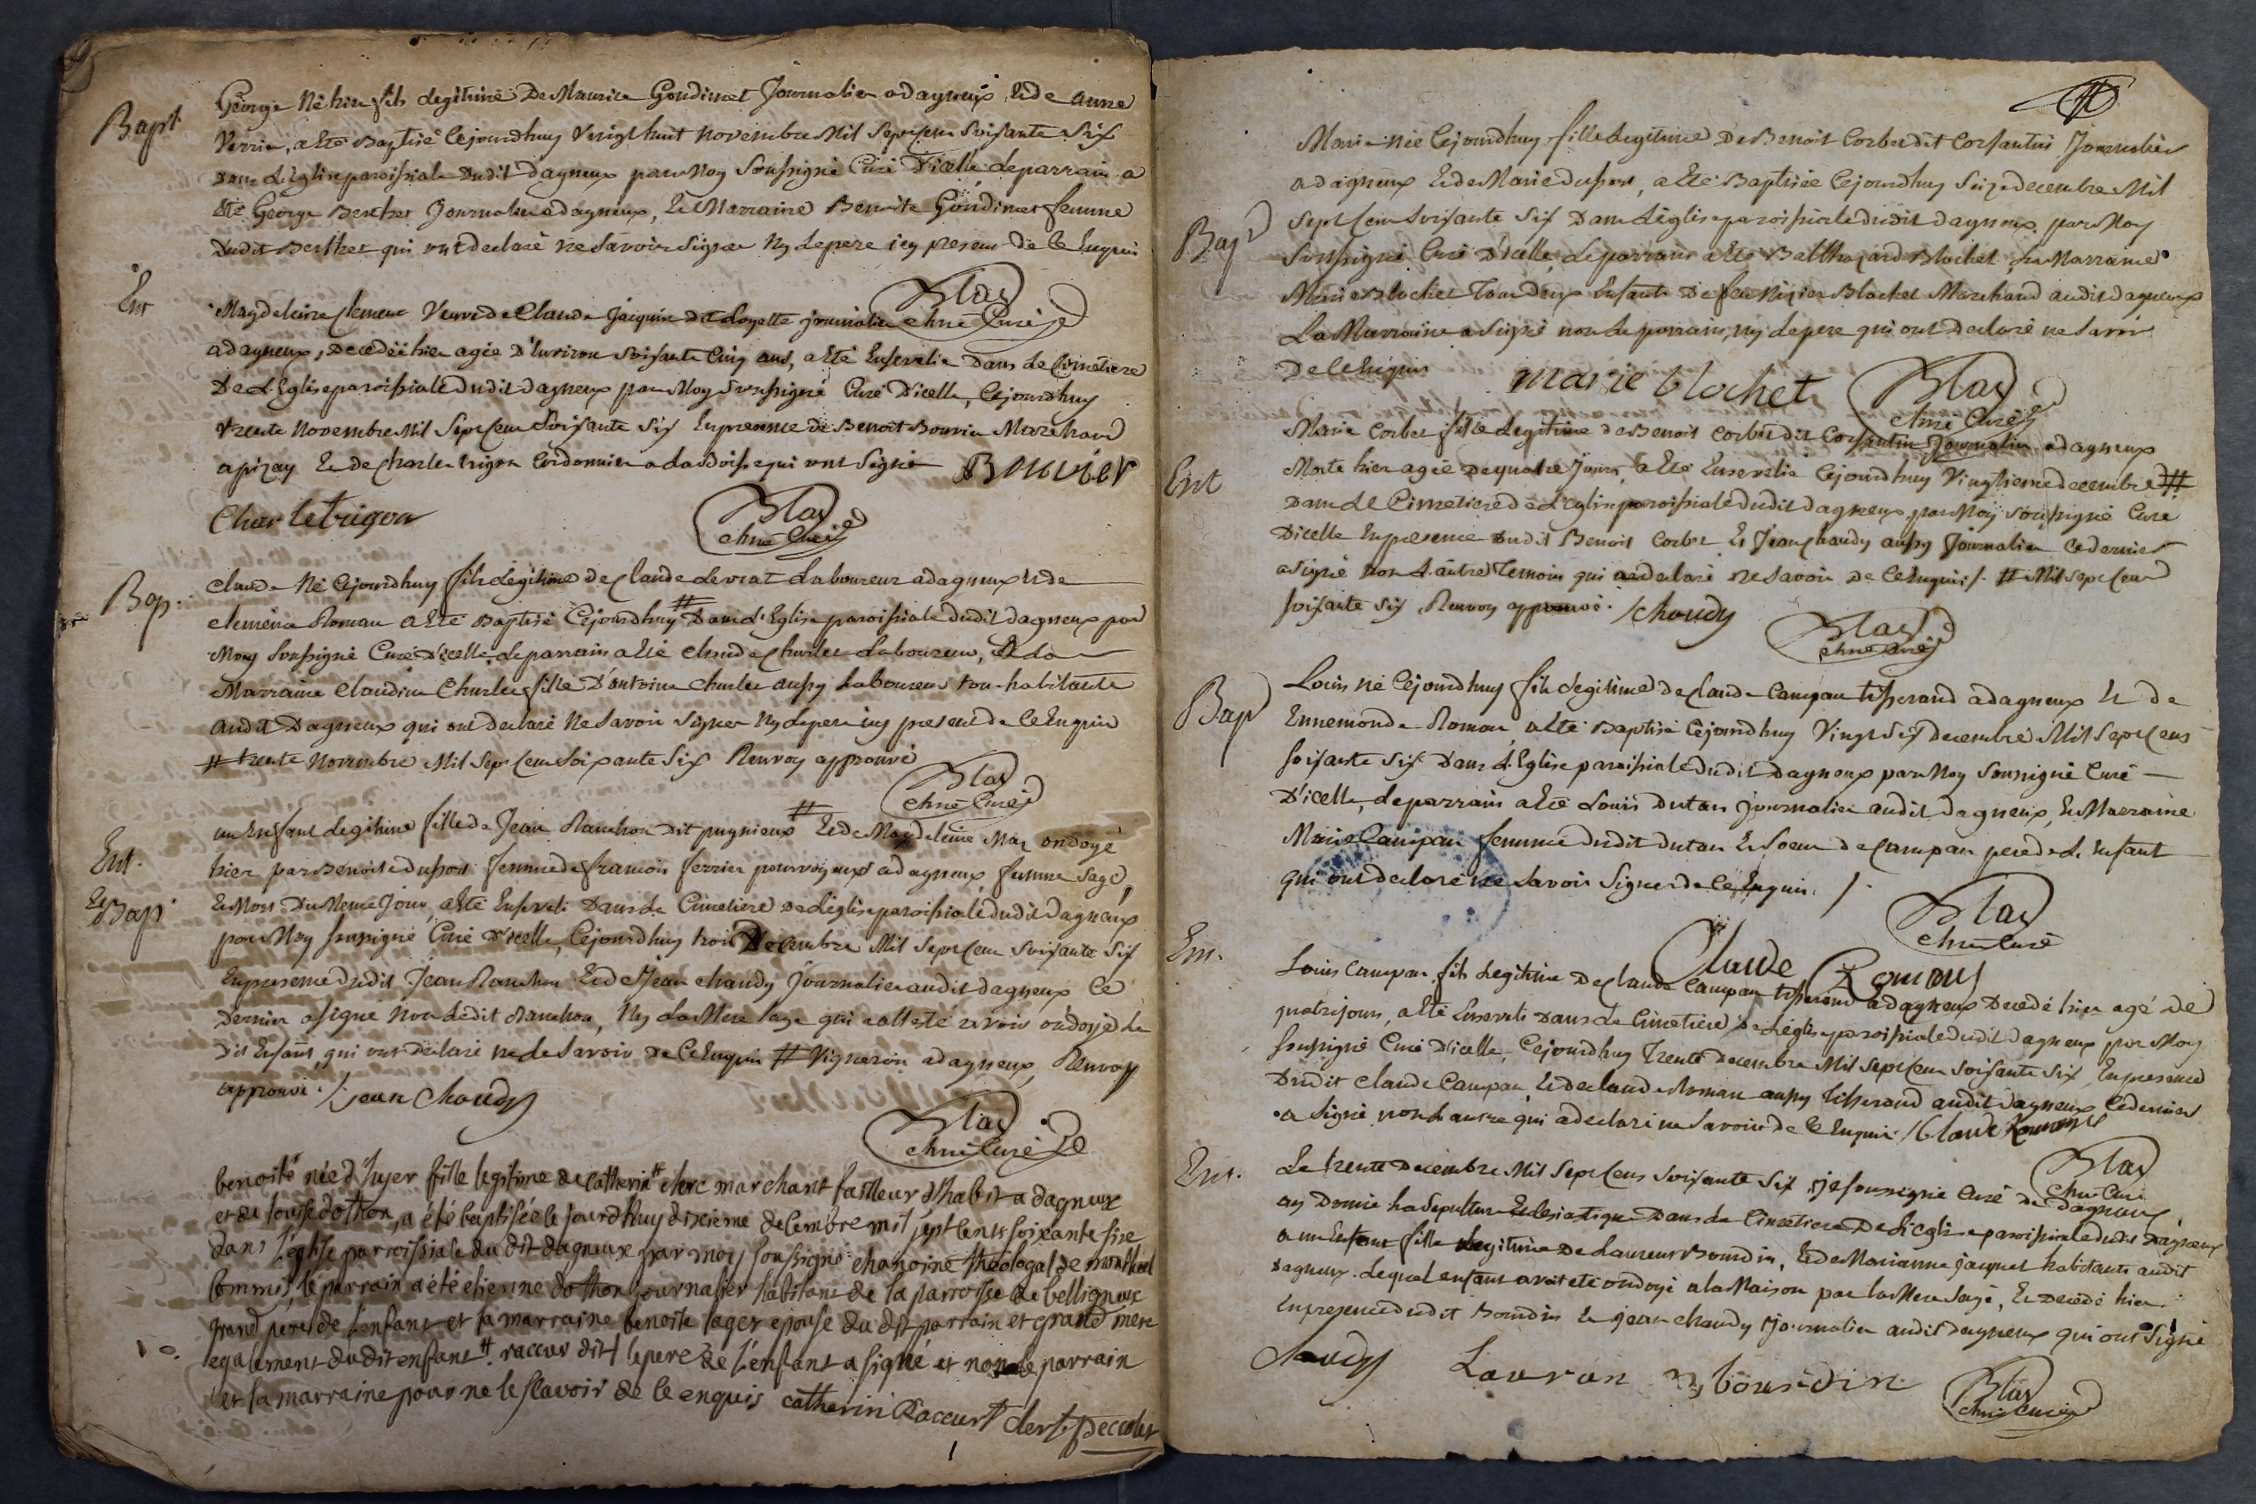 Bapt
George Né hier fils Legitime De Maurice Goudinet Journalier a dagneux, Et de anne
Verrier, a Eté Baptisé Cejourdhuy Vingt huit novembre Mil Sept Cens Soixante Six
Dans L'Eglise paroissiale Dudit dagneux par Moy Soussigné Curé D'icelle Le parrain a
Eté George Berthet Journalier a dagneux, Et Marraine Benoite Goudinet femme
Dudit Berthet qui ont declaré ne Savoir Signer Ny Le pere icy present De Ce Enquis
Blas
chne Curé
Ent
Magdeleine Clement Veuve de Claude Jacquin dit Loyette journalier
a dagneux, decedée hier agée D'Environ Soixante Cinq ans, a Eté Ensevelie Dans Le Cimetiere
De L'Eglise paroissiale Dudit dagneux par Moy Soussigné Curé D'icelle, Cejourdhuy
trente Novembre Mil Sept Cens Soixante Six En presence de Benoit Bouvier Marchand
a pizay Et de Charles trigon Cordonnier a La Boisse qui ont Signé Bouvier
Charle trigon
Blas
chne Curé
Bap.
Claude Né Cejourdhuy fils Legitime de Claude Levrat Laboureur a dagneux Et de
clemence Roman a Eté Baptisé Cejourdhuy # Dans L'Eglise paroissiale Dudit dagneux par
Moy Soussigné Curé D'icelle, Le parrain a Eté Claude Charles Laboureur, Et La
Marraine Claudine Charles fille D'antoine Charles aussy Laboureur tous habitants
audit Dagneux qui ont declaré Ne Savoir Signer Ny Le pere icy present De Ce Enquis
# trente Novembre Mil Sept Cens Soixante Six Renvoy approuvé
Blas
chne Curé
Ent.
Et Bap
un Enfant Legitime fille de Jean Ranchon Dit pugnieux # Et de Magdeleine Mas ondoyé
hier par Benoite dupont femme de francois ferrier pourvoyeur a dagneux femme Sage,
Et Mort Du Meme Jour, a Eté Enseveli Dans Le Cimetiere De L'Eglise paroissiale Dudit dagneux
par Moy Soussigné Curé D'icelle, Cejourdhuy trois Decembre Mil Sept Cens Soixante Six
En presence Dudit Jean Ranchon Et de Jean chaudy Journalier audit dagneux Ce
dernier a Signé Non Ledit Ranchon, Ny La Mere Sage qui atteste avoir ondoyé Le
Dit Enfant, qui ont Declaré ne Le Savoir De Ce Enquis # Vigneron a dagneux, Renvoy
approuvé. /. jean chaudy
Blas
chne Curé
benoite née d'hyer fille legitime de Catherin # clerc marchant tailleur d'habit a dagneux
et de louise dothon, a été baptisée le jourd'huy dixieme decembre mil sept cents soixante sixe
dans l'eglise parroissiale du dit dagneux par moy soussigné chanoine théologal de montluel
Commis, le parrain a été etienne dothon journalier habitant de la parroisse de belligneux
grand pere de l'enfant et la marraine benoite lager epouse du dit parrain et grand mere
egalement du dit enfant # raccur dit / le pere de l'enfant a signé et non le parrain
et la marraine pour ne le scavoir de ce enquis catherin Raccurt clert

Marie née Cejourdhuy fille Legitime De Benoit Corbet dit Corsantin Journalier
a dagneux Et de Marie dupont, a Eté Baptisée Cejourdhuy Seize decembre Mil
Sept Cens Soixante Six Dans L'Eglise paroissiale dudit dagneux, par Moy
Bap
Soussigné Curé D'icelle, Le parrain a Eté Balthazard Blochet, La Marraine
Marie Blochet Tous Deux Enfants De feu Nizier Blochet Marchand audit dagneux
La Marraine a Signé non Le parrain, ny Le pere qui ont Declaré ne Savoir
De Ce Enquis marie blochet Blas
chne Curé
Ent
Marie Corbet fille Legitime de Benoit Corbet dit Corsantin Journalier a dagneux
Morte hier agée De quatre Jours, a Eté Ensevelie Cejourdhuy Vingtieme decembre #
Dans Le Cimetiere de L'Eglise paroissiale dudit dagneux, par Moy Soussigné Curé
D'icelle En presence Dudit Benoit Corbet Et Jean Chaudy aussy Journalier Ce dernier
a Signé non L'autre Temoin qui a declaré ne Savoir De Ce Enquis /. # Mil Sept Cens
Soixante Six, Renvoy approuvé. / chaudy
Blas
chne Curé
Bap
Louis né Cejourdhuy fils Legitime de Claude Campan tisserand a dagneux Et de
Ennemonde Roman a Eté Baptisé Cejourdhuy Vingt Six Decembre Mil Sept Cens
Soixante Six Dans L'Eglise paroissiale Dudit Dagneux par Moy Soussigné Curé
D'icelle, Le parrain a Eté Louis Dutan Journalier audit dagneux, Et Marraine
Marie Campan femme Dudit Dutan Et Soeur de Campan pere de L'Enfant
qui ont declaré ne Savoir Signer de Ce Enquis. /.
Blas
chne Curé
Claude Roman
Ent.
Louis Campan fils Legitime De Claude Campan tisserand a dagneux Decedé hier agé de
quatre jours, a Eté Enseveli Dans Le Cimetiere De L'Eglise paroissiale Dudit dagneux par Moy
Soussigné Curé D'icelle, Cejourdhuy Trente Decembre Mil Sept Cens Soixante Six, En presence
Dudit Claude Campan Et de Claude Roman aussy Tisserand audit dagneux Ce dernier
a Signé non L'autre qui a declaré ne Savoir De Ce Enquis / Claude Roman
Blas
chne Curé
Ent.
Le trente Decembre Mil Sept Cens Soixante Six, je soussigné Curé de Dagneux
ay Donné La Sepulture Eclesiastique Dans Le Cimetiere De L'Eglise paroissiale dudit Dagneux
a un Enfant fille Legitime De Laurens Bourdin, Et de Marianne jacquet habitants audit
dagneux. Lequel enfant avoit eté ondoyé a la Maison par la Mere Sage, Et Decedé hier
En presence dudit Bourdin Et jean chaudy journalier audit dagneux qui ont Signé
chaudy Lauran bourdin Blas
chne Curé